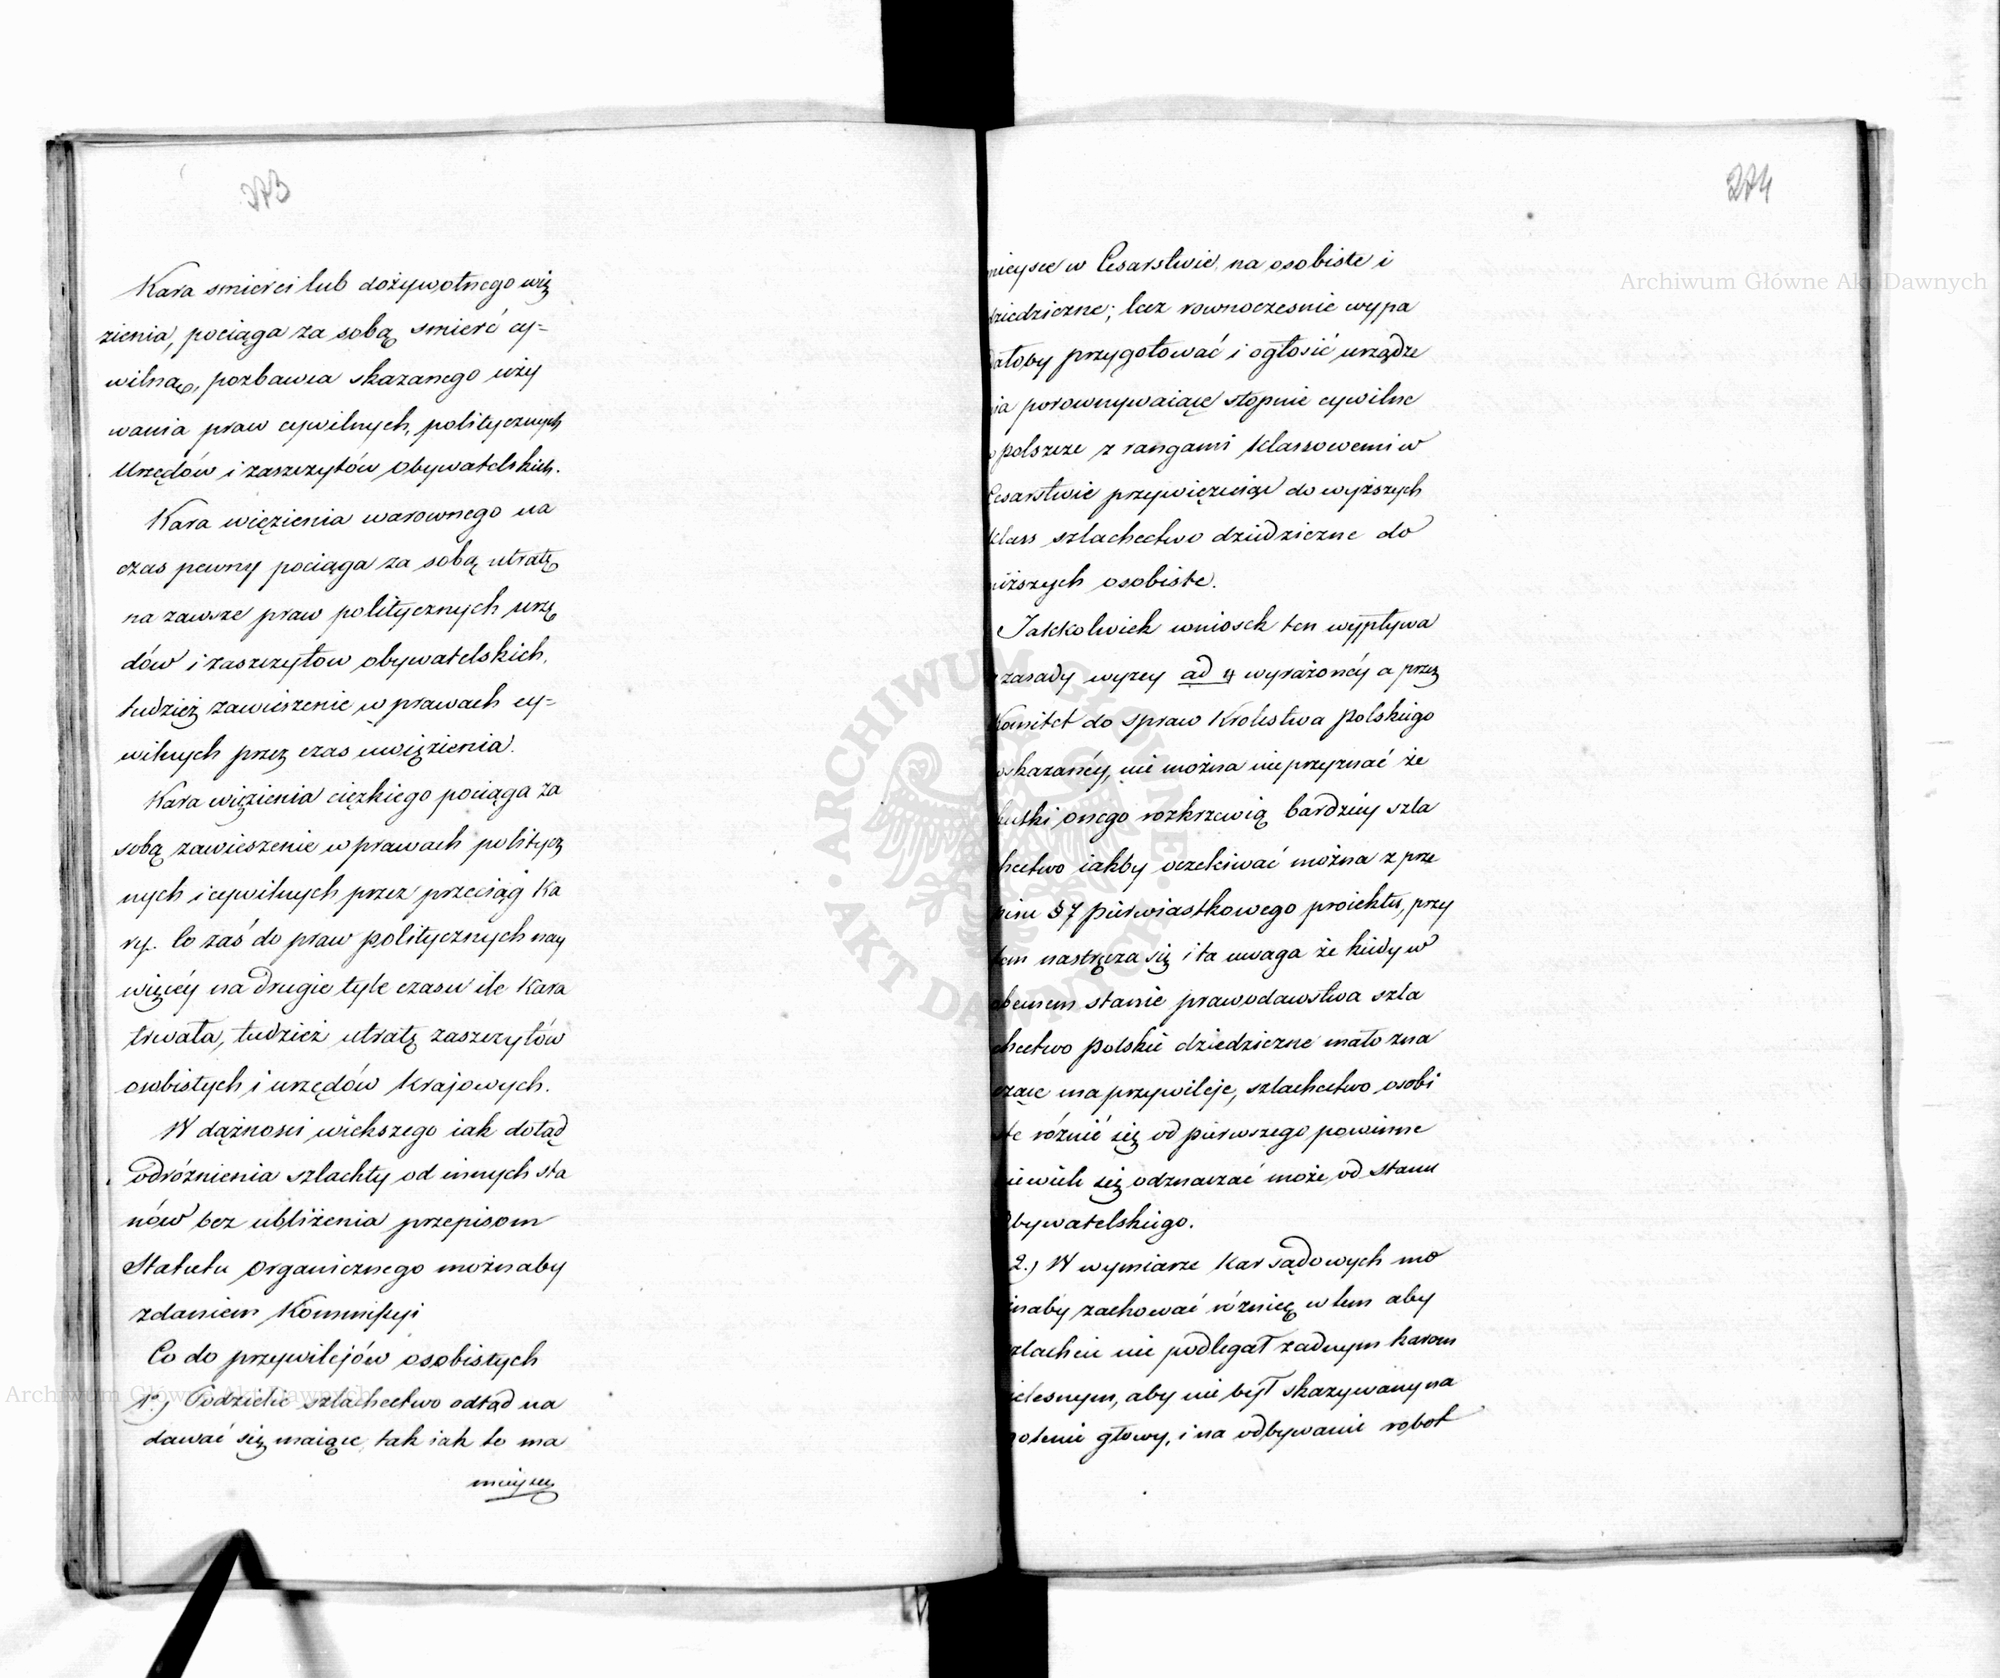 273
Kara smierci lub dożywotnego wię
zienia, pociąga za sobą smierć cy=
wilną, pozbawia skazanego uży
wania praw cywilnych, politycznych
Urzędów i zaszczytów obywatelskich.
Kara więzienia warownego na
czas pewny pociąga za sobą utratę
na zawsze praw politycznych urzę
dów i zaszczytow obywatelskich,
tudzież zawieszenie w prawach cy=
wilnych przez czas uwięzienia.
Kara więzienia cięzkiego pociąga za
sobą zawieszenie w prawach politycz
nych i cywilnych przez przeciąg Ka
ry. Co zaś do praw politycznych nay
więcéy na drugie tyle czasu ile Kara
trwała, tudzież utratę zaszczytów
osobistych i urzędów Krajowych.
W dążnosci wiekszego iak dotąd
odróżnienia szlachty od innych sta
nów bez ubliżenia przepisom
Statutu Organicznego możnaby
zdaniem Kommissyi
Co do przywilejów osobistych
1º, Podzielić szlachectwo odtąd na
dawać się maiące, tak iak to ma
mieysce
274
mieysce w Cesarstwie na osobiste i
dziedziczne; lecz rownoczesnie wypa
dałoby przygotować i ogłosić urządze
nia porownywaiące stopnie cywilne
w polszcze z rangami Klassowemi w
Cesarstwie przywięzuiąc do wyższych
klass szlachectwo dziedziczne do
niższych osobiste.
Jakkolwiek wniosek ten wypływa
z zasady wyzey ad wyrażonéy a przez
Komitet do spraw Krolestwa polskiego
wskazanéy, nie można nieprzyznać że
skutki onego rozkrzewią bardziey szla
chectwo iakby oczekiwać można z prze
pisu § 7 pierwiastkowego proiektu, przy
tem nastręcza się i ta uwaga że kiedy w
obecnem stanie prawodawstwa szla
chectwo polskie dziedziczne mało zna
czące ma przywileje, szlachectwo osobi
ste różnić się od pierwszego powinne
niewiele się odznaczać może od stanu
Obywatelskiego.
2.) W wymiarze Kar sądowych mo
żnaby zachować różnicę w tem aby
szlachcic nie podlegał żadnym karom
cielesnym, aby nie był skazywany na
golenie głowy, i na odbywanie robot
ARCHIWUM GŁÓWNE AKT DAWNYCH
Archiwum Główne Akt Dawnych
Archiwum Główne Akt Dawnych